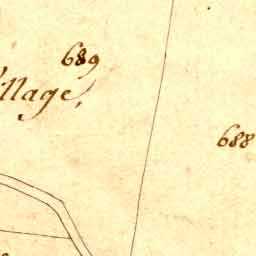 689
illage,
688